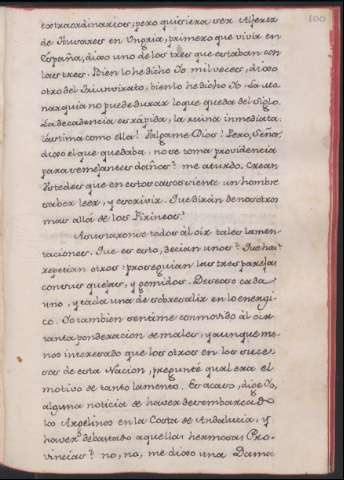 100
extraordinarios, pero quisiera ser Alferez
de Usares en Ungria, primero que vivir en
España, dixo uno de los tres que estaban con
las tres. Bien lo he dicho Yo mil veces, dixo
otro del Triunvirato, bien lo he dicho Yo. La mo-
narquia no puede durar lo que queda del Siglo.
La decadencia es rápida, la ruina inmediata:
Lastima como ella! Valgame Dios! Pero, Señor,
dixo el que quedaba, no se toma providencia
para semejantes daños? me aturdo. Crean
Ustedes que en estos casos siente un hombre
saber leer, y escrivir. Que dirán de nosotros
mas allá de los Pirineos?
Asustaronse todos al oir tales lamen-
taciones. Que es esto, decian unos? Que hai
repetian otros: proseguian las tres parejas
con sus quejas, y gemidos. Deseoso cada
uno, y cada una de sobresalir en lo energi-
co. Yo tambien sentíme conmovido al oir
tanta ponderacion de males, y aunque me-
nos interesado que los otros en los suce-
sos de esta Nacion, pregunté qual era el
motivo de tanto lamento. Es acaso, dixe Yo,
alguna noticia de haver desembarcado
los Argelinos en la Costa de Andalucia, y
haver debastado aquellas hermosas Pro-
vincias? no, no, me dixo una Dama